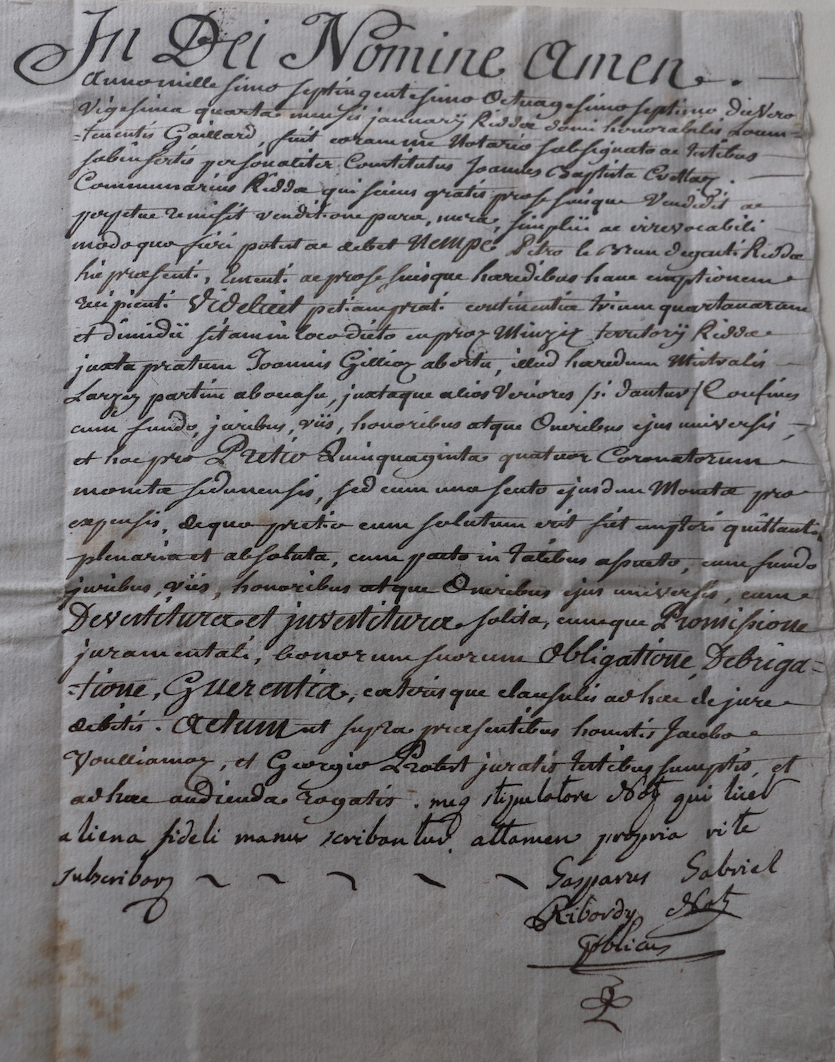 In Dei Nomine Amen.
Anno millesimo septingentesimo Octuagesimo septimo die Vero
Vigesima quarta mensis januarÿ Riddæ domi honorabilis Laur=
=tenentis Gaillard, fuit coram me Notario subsignato ac testibus
subinsertis personaliter Constitutus Joannes Baptista Crettaz.
Communarius Riddæ qui sciens gratis pro se suisque Vendidit ac
perpetue remisit venditione pura, mera, simplici ac irrevocabili
modo quo fieri potest ac debet Nempe Petro le Brun degenti Riddæ
hic præsenti, Ementi ac pro se suisque hæredibus hanc emptionem
recipienti Videlicet petiam prati continentiæ trium quartanarum
et dimidii sitam in loco dicto en proz Minziz territorÿ Riddæ
juxta pratum Joannis Gillioz ab ortu, illud hæredum Mistralis
Largez partim ab occasu, juxtaque alios Veriores /si dantur/ Confines
cum fundo, juribus, viis, honoribus atque Oneribus ejus universis,
et hoc pro Pretio Quinquaginta quatuor Coronatorum
monetæ sedunensis, sed cum uno scuto ejusdem Monetæ pro
expensis, de quo pretio cum solutum erit fiet emptori quittantia
plenaria et absoluta, cum pacto in talibus assueto, cum fundo
juribus, viis, honoribus atque Oneribus ejus universis, cum
Devestitura et investitura solita, cumque Promissione
juramentali, bonorum suorum Obligatione, Debriga=
=tione, Guerentia, cæterisque clausulis ad hæc de jure
debitis. Actum ut supra præsentibus honestis Jacobo
Voulliamoz, et Georgio Probst juratis testibus sumptis, et
ad hæc audienda rogatis. meq stipulatore Notº qui licet
aliena fideli manu scribantur. attamen propria rite
subscribor
Gasparus Gabriel
Ribordy Notº
Pblicus